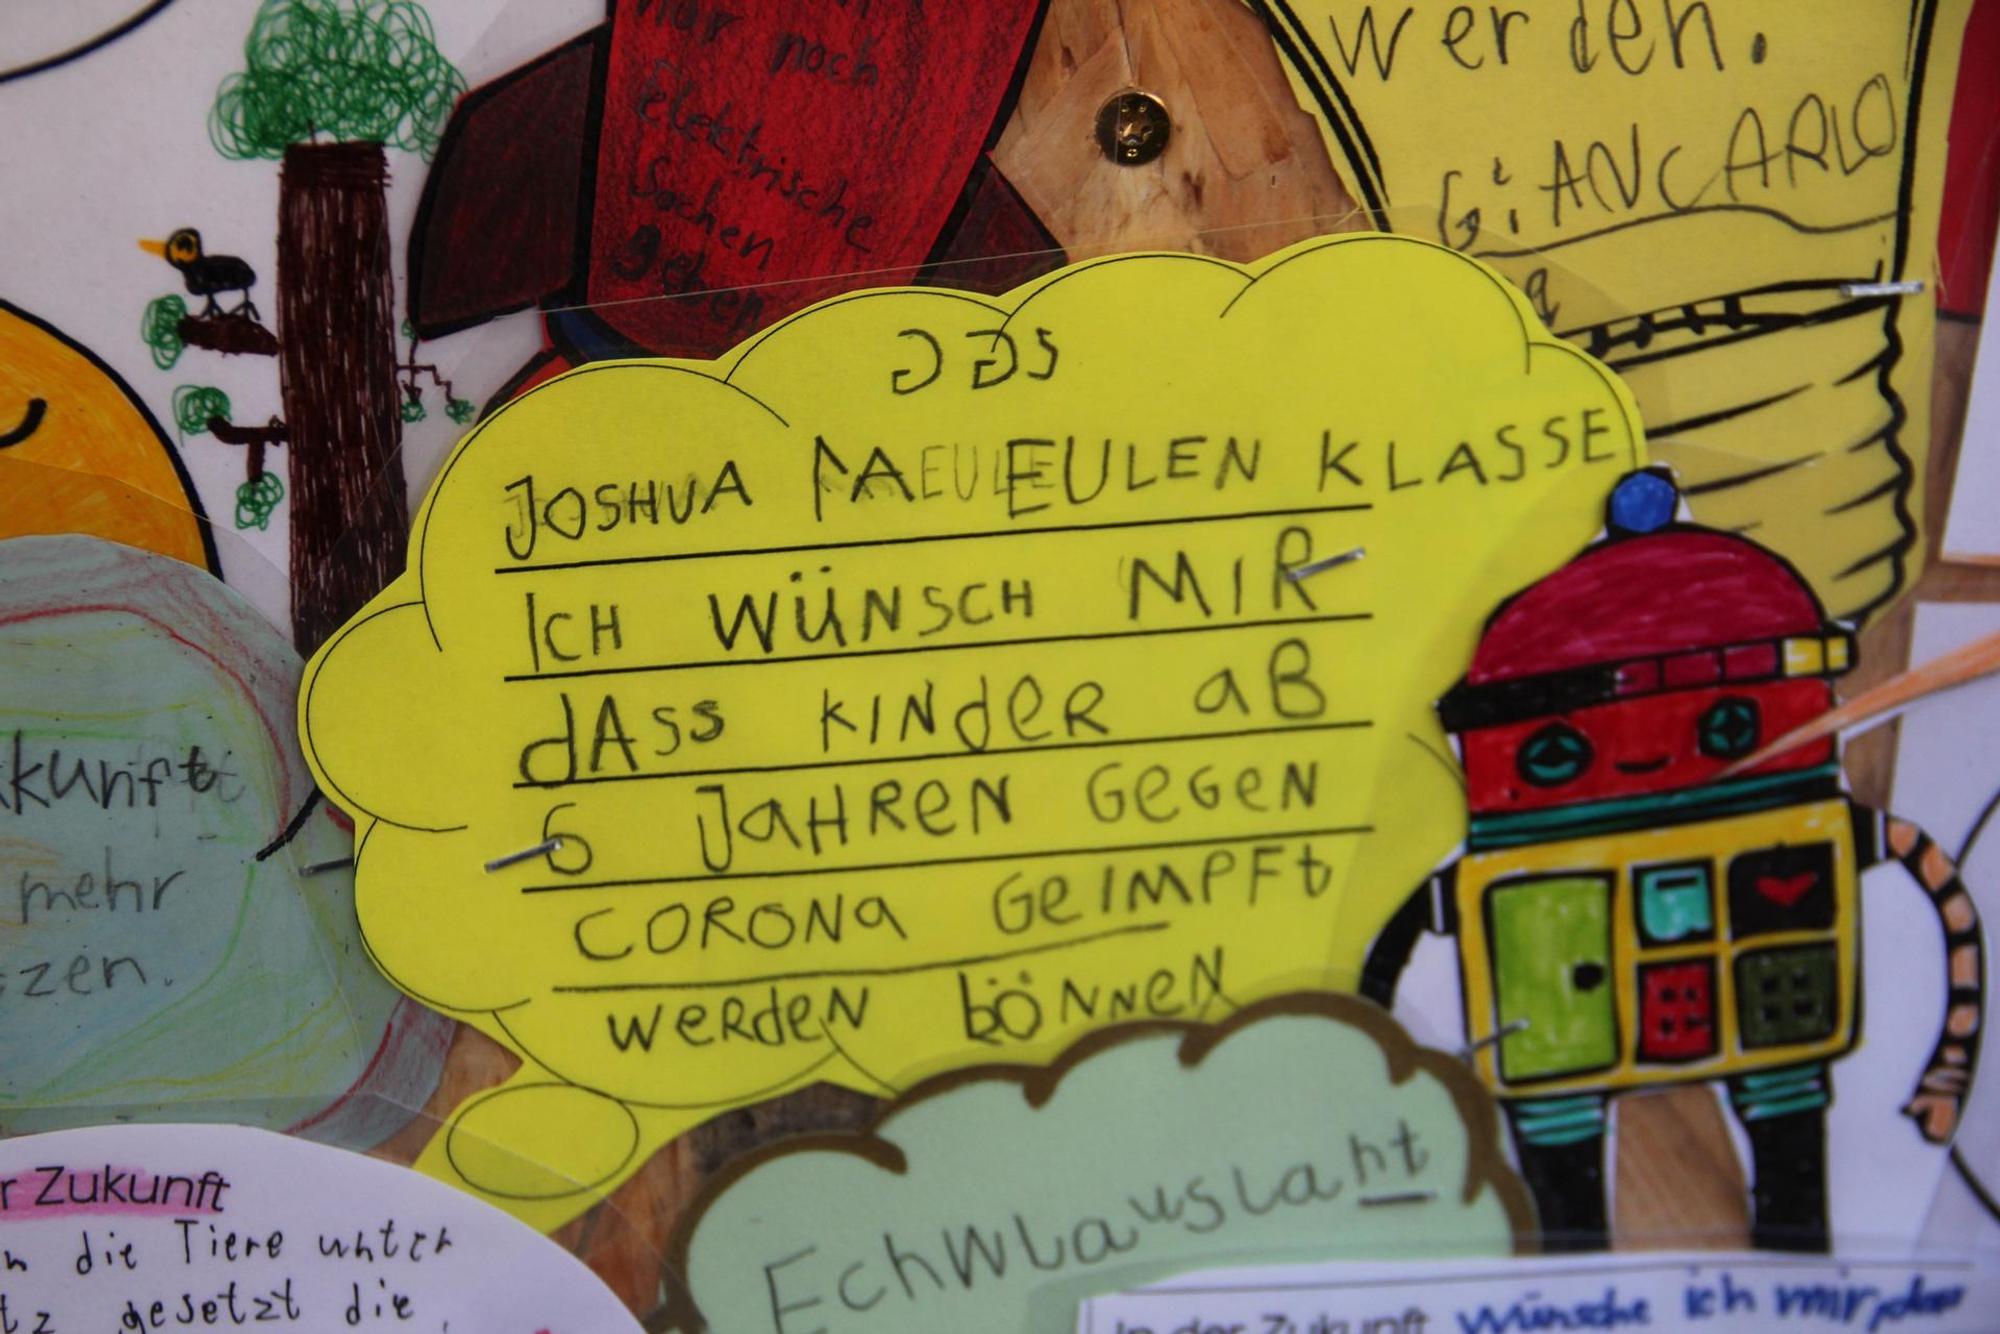 nur noch
Elektrische
Sachen
geben
werden.
GiANCARLO
GGS
JOSHUA EULEN KLASSE
ICH WÜNSCH MIR
dASS KINdeR aB
6 JaHREN GeGeN
CORONa GeIMPFt
weRdeN BÖNNeN
kunft
mehr
zen.
r Zukunft
n die Tiere unter
tz gesetzt die
EchWLausLaht
In der Zukunft wünsche ich mir, dass